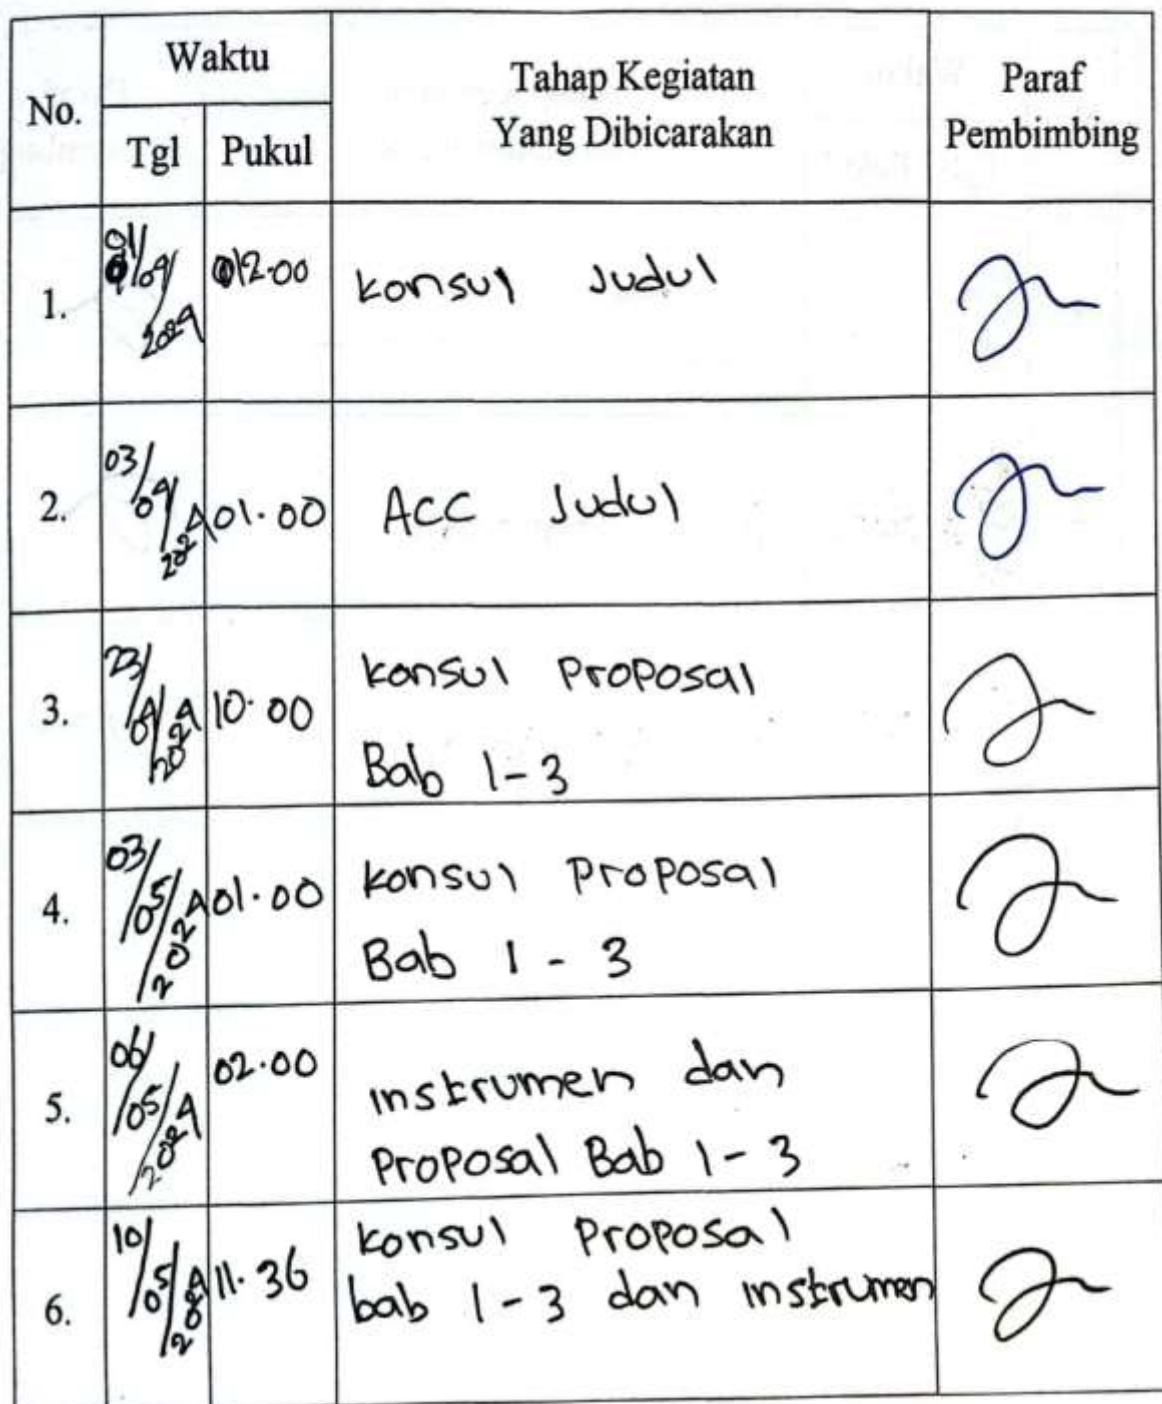 No.
Waktu
Tgl
Pukul
Tahap Kegiatan
Yang Dibicarakan
Paraf
Pembimbing
1.
01/04/2024
12.00
Konsul Judul
2.
03/04/2024
01.00
ACC Judul
3.
23/04/2024
10.00
Konsul Proposal
Bab 1-3
4.
03/05/2024
01.00
Konsul Proposal
Bab 1 - 3
5.
06/05/2024
02.00
instrumen dan
Proposal Bab 1-3
6.
10/05/2024
11.36
Konsul Proposal
bab 1-3 dan instrumen